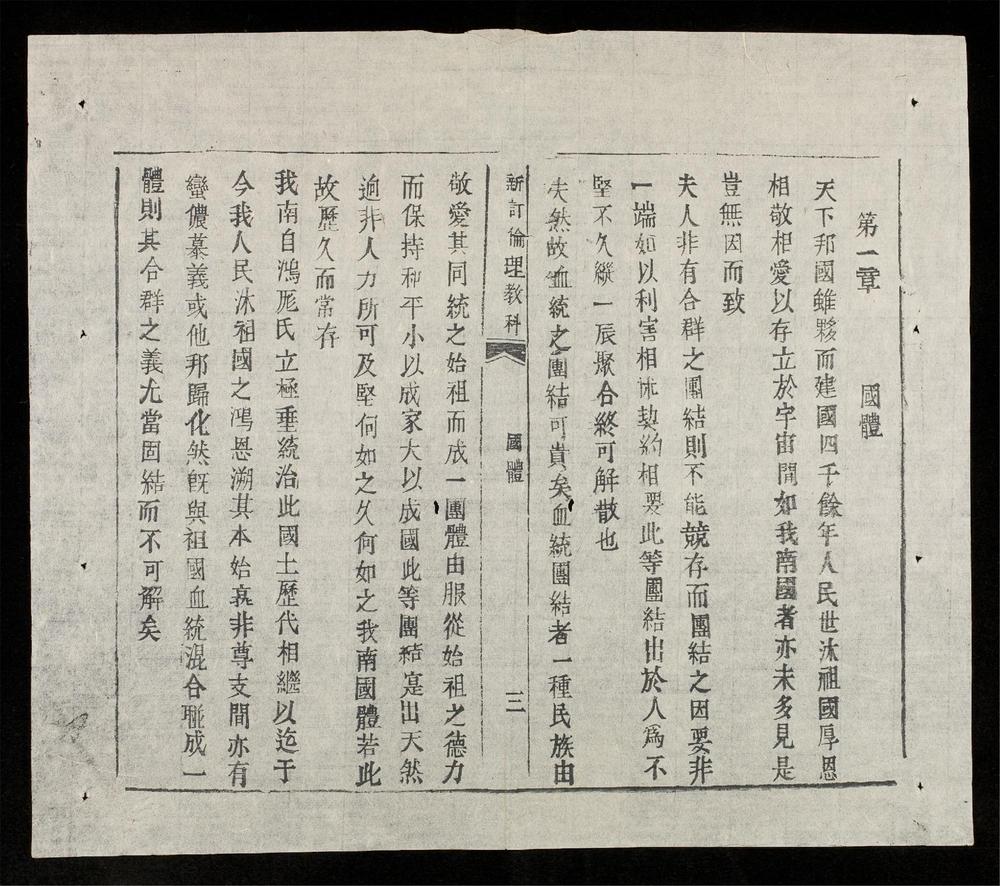 第一章 國體
天下邦國雖夥而建國四千餘年人民世沐祖國厚恩
相敬相愛以存立於宇宙間如我南國者亦未多見是
豈無因而致
夫人非有合群之團結則不能競存而團結之因要非
一端如以利害相怵契約相要此等團結出於人爲不
堅不久縱一辰聚合終可解散也
夫然故血統之團結可貴矣血統團結者一種民族由
新訂倫理教科 國體 三
敬愛其同統之始祖而成一團體由服從始祖之德力
而保持和平小以成家大以成國此等團結寔出天然
逈非人力所可及堅何如之久何如之我南國體若此
故歷久而常存
我南自鴻厖氏立極垂統治此國土歷代相繼以迄于
今我人民沐祖國之鴻恩溯其本始孰非尊支間亦有
蠻儂慕義或他邦歸化然既與祖國血統混合聯成一
體則其合群之義尤當固結而不可解矣